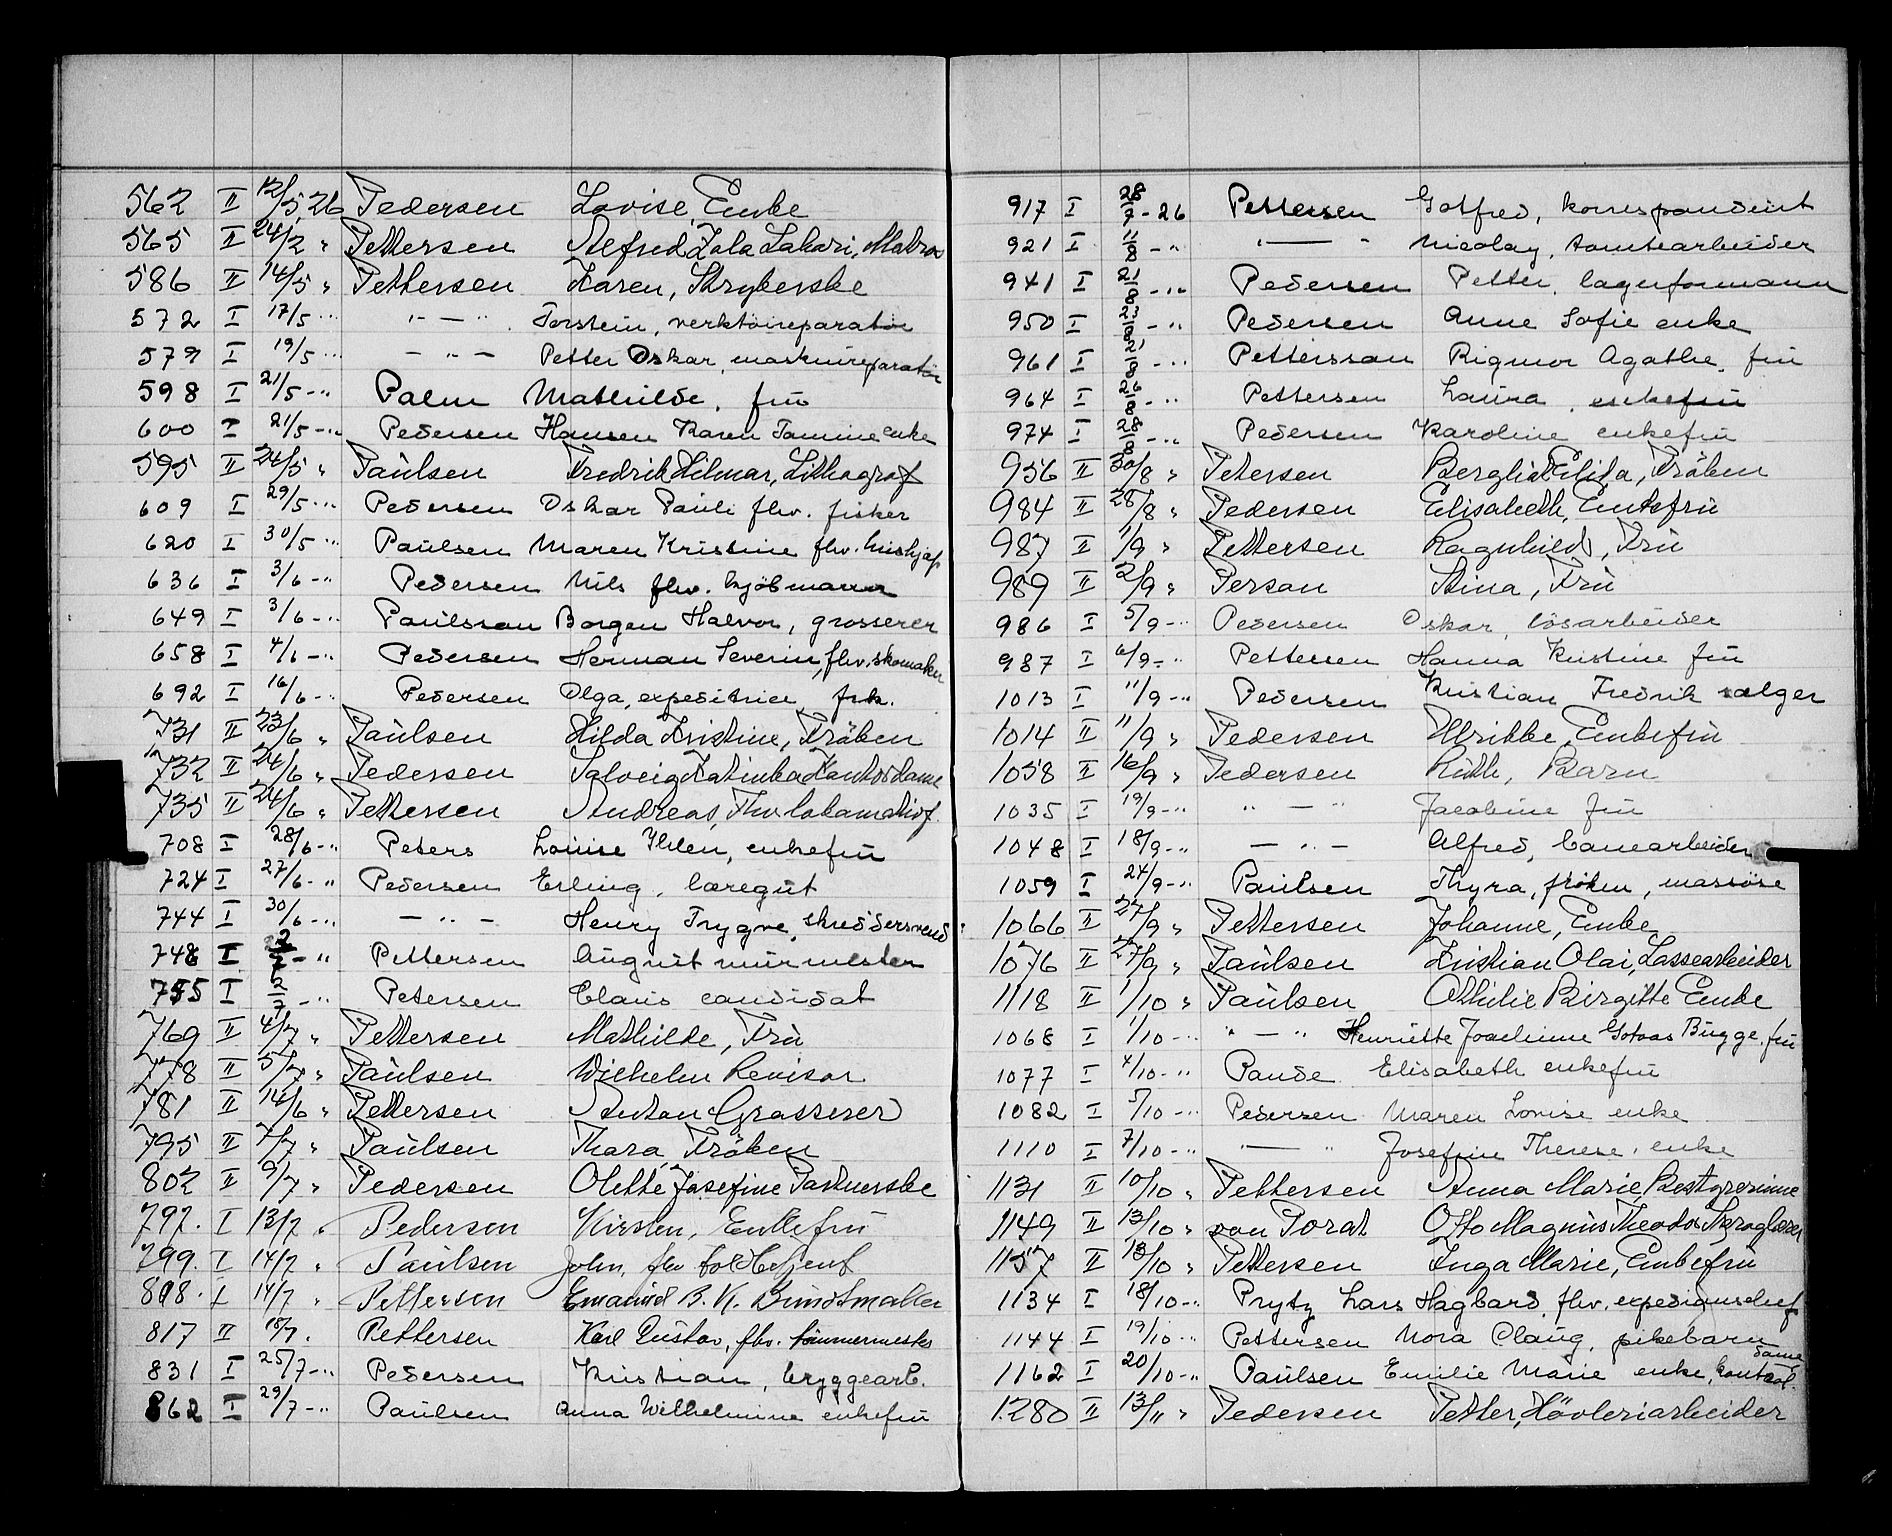 562 II 12/5 26 Pedersen Lovise, Enke
565 II 24/2 " Pettersen Alfred Zola Zakari, Matros
586 II 14/5 " Pettersen Karen, Strykerske
572 I 17/5 -" "—" Torstein, verktöireparatör
579 I 19/5 -" — " — Petter Oskar, maskinreparatör
598 I 21/5 -" Palm Mathilde, frü
600 I 21/5 -" Pedersen Hansen Karen Tomine enke
595 II 24/5 " Paulsen Fredrik Hilmar, Lithograf
609 I 29/5 -" Pedersen Oskar Pauli fhv. fisker
620 I 30/5 -" Paulsen Maren Kristine fhv. hushj.
636 I 3/6 -" Pedersen Nils fhv. kjöbmann
649 I 3/6 -" Paulsson Borgen Halvor, grosserer
658 I 4/6 -" Pedersen Herman Severin, fhv. skomaker
692 I 16/6 -" Pedersen Olga, expeditrice, frk.
731 II 23/6 " Paulsen Hilda Kristine, Fröken
732 II 24/6 " Pedersen Solveig Katinka Kontordame
735 II 24/6 " Pettersen Andreas, Fhv. lokomotivf.
708 I 28/6 -" Peters Louise, enkefrü
724 I 27/6 -" Pedersen Erling, læregut
744 I 30/6 -" — " — Henry Trygve, skreddersvend
748 I 2/7 -" Pettersen August murmester
755 I 2/7 -" Petersen Claus candidat
769 II 4/7 " Pettersen Mathilde, Frü
778 II 5/7 " Paulsen Wilhelm Revisor
781 II 14/6 " Pettersen Anton Grosserer
795 II 7/7 " Paulsen Thora, Fröken
802 II 9/7 " Pedersen Olette Josefine
797. I 13/7 " Pedersen Kirsten, Enkefru
799. I 14/7 " Paulsen John, fhv. toldbetjent
808. I 14/7 " Pettersen Emanuel B. K. Buntmaker
817 II 18/7. Pettersen Karl Gustav, fhv. tömmermester
831 I 25/7 -" Pedersen Kristian, bryggearb.
862 I 29/7 -" Paulsen Anna Wilhelmine enkefrü
917 I 28/7 - 26 Pettersen Gotfred, korrespondent
921 I 11/8 -" "—" Nicolay, tomtearbeider
941 I 21/8 -" Pedersen Petter, lagerformann
950 I 23/8 -" Pedersen Anne Sofie enke
961 I 21/8 -" Petterssan Rigmor Agathe, frü
964 I 26/8 -" Pettersen Laura, enkefrü
974 I 28/8 -" Pedersen Karoline enkefrü
956 II 30/8 " Petersen Bergliot Elida, Fröken
984 II 28/8 " Pedersen Elisabeth, Enkefrü
987 II 1/9 " Pettersen Ragnhild, Frü
989 II 2/9 " Person Stina, Frü
986 I 5/9 -" Pedersen Oskar, lösarbeider
987 I 6/9 -" Pettersen Hanna Kristine frü
1013 I 11/9 -" Pedersen Kristian Fredrik sælger
1014 II 11/9 " Pedersen Ulrikke, Enkefrü
1058 II 16/9 " Pedersen Ruth, Barn
1035 I 19/9 -" " — " Jacobine frü
1048 I 18/9 -" — " — Alfred, banearbeider
1059 I 24/9 -" Paulsen Thyra, fröken, massöse
1066 II 27/9 " Pettersen Johanne, Enke
1076 II 27/9 " Paulsen Kristian Olai, Lossearbeider
1118 II 1/10 " Paulsen Othilie Birgitte Enke
1068 I 1/10 -" " — " Henriette Joachime Gotaas Bugge, frü
1077 I 4/10 -" Paude Elisabeth enkefrü
1082 I 5/10 -" Pedersen Maren Lovise enke
1110 I 7/10 -" — " Josefine Therese, enke
1131 II 10/10 " Pettersen Anna Marie, Bestyrerinne
1149 II 13/10 " von Porat Otto Magnus Theodor
1157 II 13/10 " Pettersen Inga Marie, Enkefrü
1134 I 18/10 -" Prytz Lars Hagbard, fhv. expedionschef
1144 I 19/10 -" Pettersen Nora Olaug, pikebarn
1162 I 20/10 -" Paulsen Emilie Marie enke, kontrol. dame
1280 II 13/11 " Pedersen Petter, Hövleriarbeider